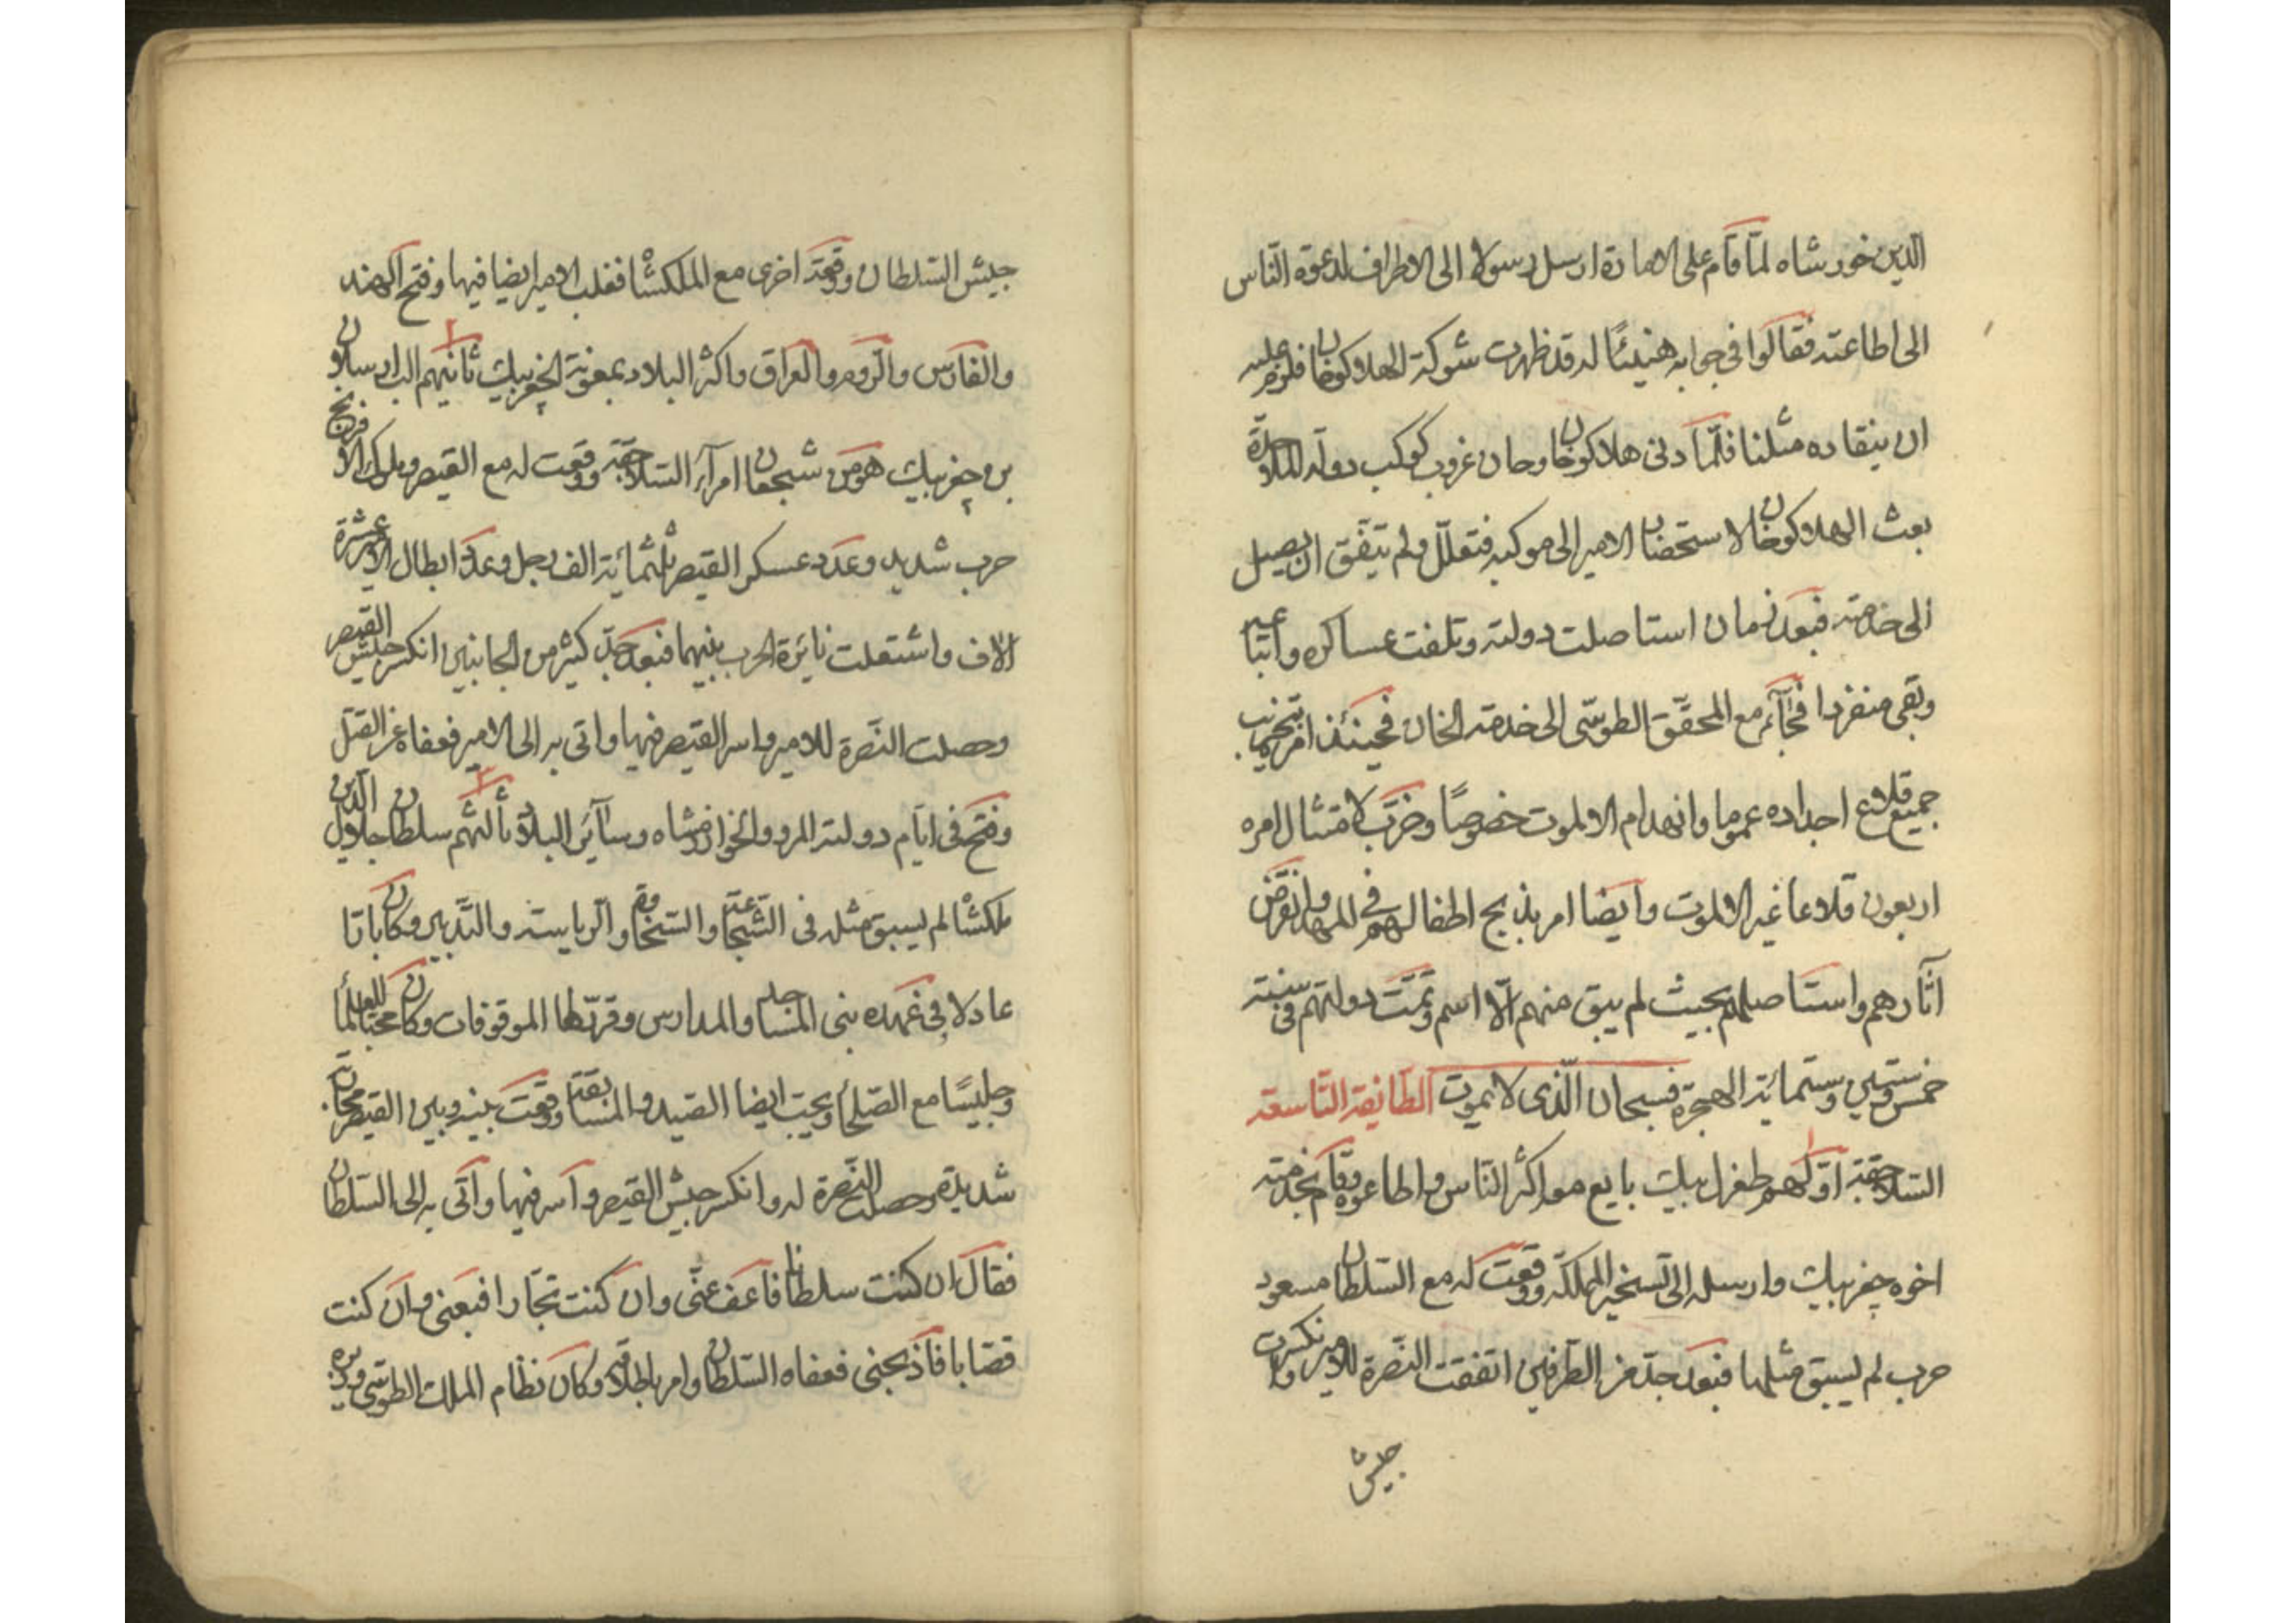 الدين خورشاه لمّا قام على الامارة ارسل رسولا الى الاطراف لدعوة النّاس
الى اطاعته فقالوا فى جوابه هنيئًا له قد ظهرت شوكة الهلاكوخان فلزم عليه
ان ينقاده مثلنا فلمّا دنى هلاكوخان وحان غروب كوكب دولة الملاحدة
بعث الهلاكوخان لاستحضار الامير الى موكبه فتعلّل ولم يتّفق ان يصل
الى خدمته فبعد زمان استاصلت دولته وتلفت عساكره واتباعه
وبقى منفردا فجآء مع المحقّق الطوسّى الى خدمة الخان فحينئذ امر بتخريب
جميع قلاع اجداده عموما وانهدام الالموت خصوصًا وخرّب لامتثال امره
اربعون قلاعا غير الالموت وايضا امر بذبح اطفالهم فى المهد وانقرض
آثارهم واستاصلهم بحيث لم يبق منهم الّا اسم وتمّت دولتهم فى سنة
خمس وستمين وستمائة الهجرة فسبحان الّذى لا يموت الطّائفة التّاسعة
السّلاجقة اوّلهم طغرل بيك بايع معه اكثر النّاس واطاعوه وقام بخدمته
اخوه چغر بيك وارسله الى تسخير المملكة ووقعت له مع السّلطان مسعود
حرب لم يسبق مثلها فبعد جدّ من الطّرفين اتفقت النّصرة للامير وانكسرت
جيش
جيش السّلطان وقعة اخرى مع الملكشاه فغلب الامير ايضا فيها وفتح الهند
والفارس والرّوم والعراق واكثر البلاد بمعونة الچغر بيك ثانيهم الب ارسلان
بن چغر بيك هو من شجعان امرآء السّلاجقة ووقعت له مع القيصر وملوك الافرنج
حرب شديد وعدد عسكر القيصر ثلثمائة الف رجل وعدد ابطال الامير عشرة
الاف واشتعلت نائرة الحرب بينهما فبعد جدّ كثير من الجانبين انكسر جيش القيصر
وحصلت النّصرة للامير واسر القيصر فيها واتى به الى الامير فعفاه عن القتل
وفتح فى ايّام دولته المرو والخوارزمشاه وسآئر البلاد ثالثهم سلطان جلال الدّين
ملكشاه لم يسبق مثله فى الشّجاعة والسّخاوة والرياسة والتّدبير وكان باتا
عادلا فى عهده بنى المساجد والمدارس وقرّر لها الموقوفات وكان محبّا للعلمآء
وجليسًا مع الصّلحآء ويحب ايضا الصّيد والمسابقة ووقعت بينه وبين القيصر محاربة
شديدة وحصلت النّصرة له وانكسر جيش القيصر واسر فيها واتى به الى السّلطان
فقال ان كنت سلطانا فاعف عنّى وان كنت تجّارا فبعنى وان كنت
قصّابا فاذبحنى فعفاه السّلطان وامر باطلاقه وكان نظام الملك الطوسّى وزيره